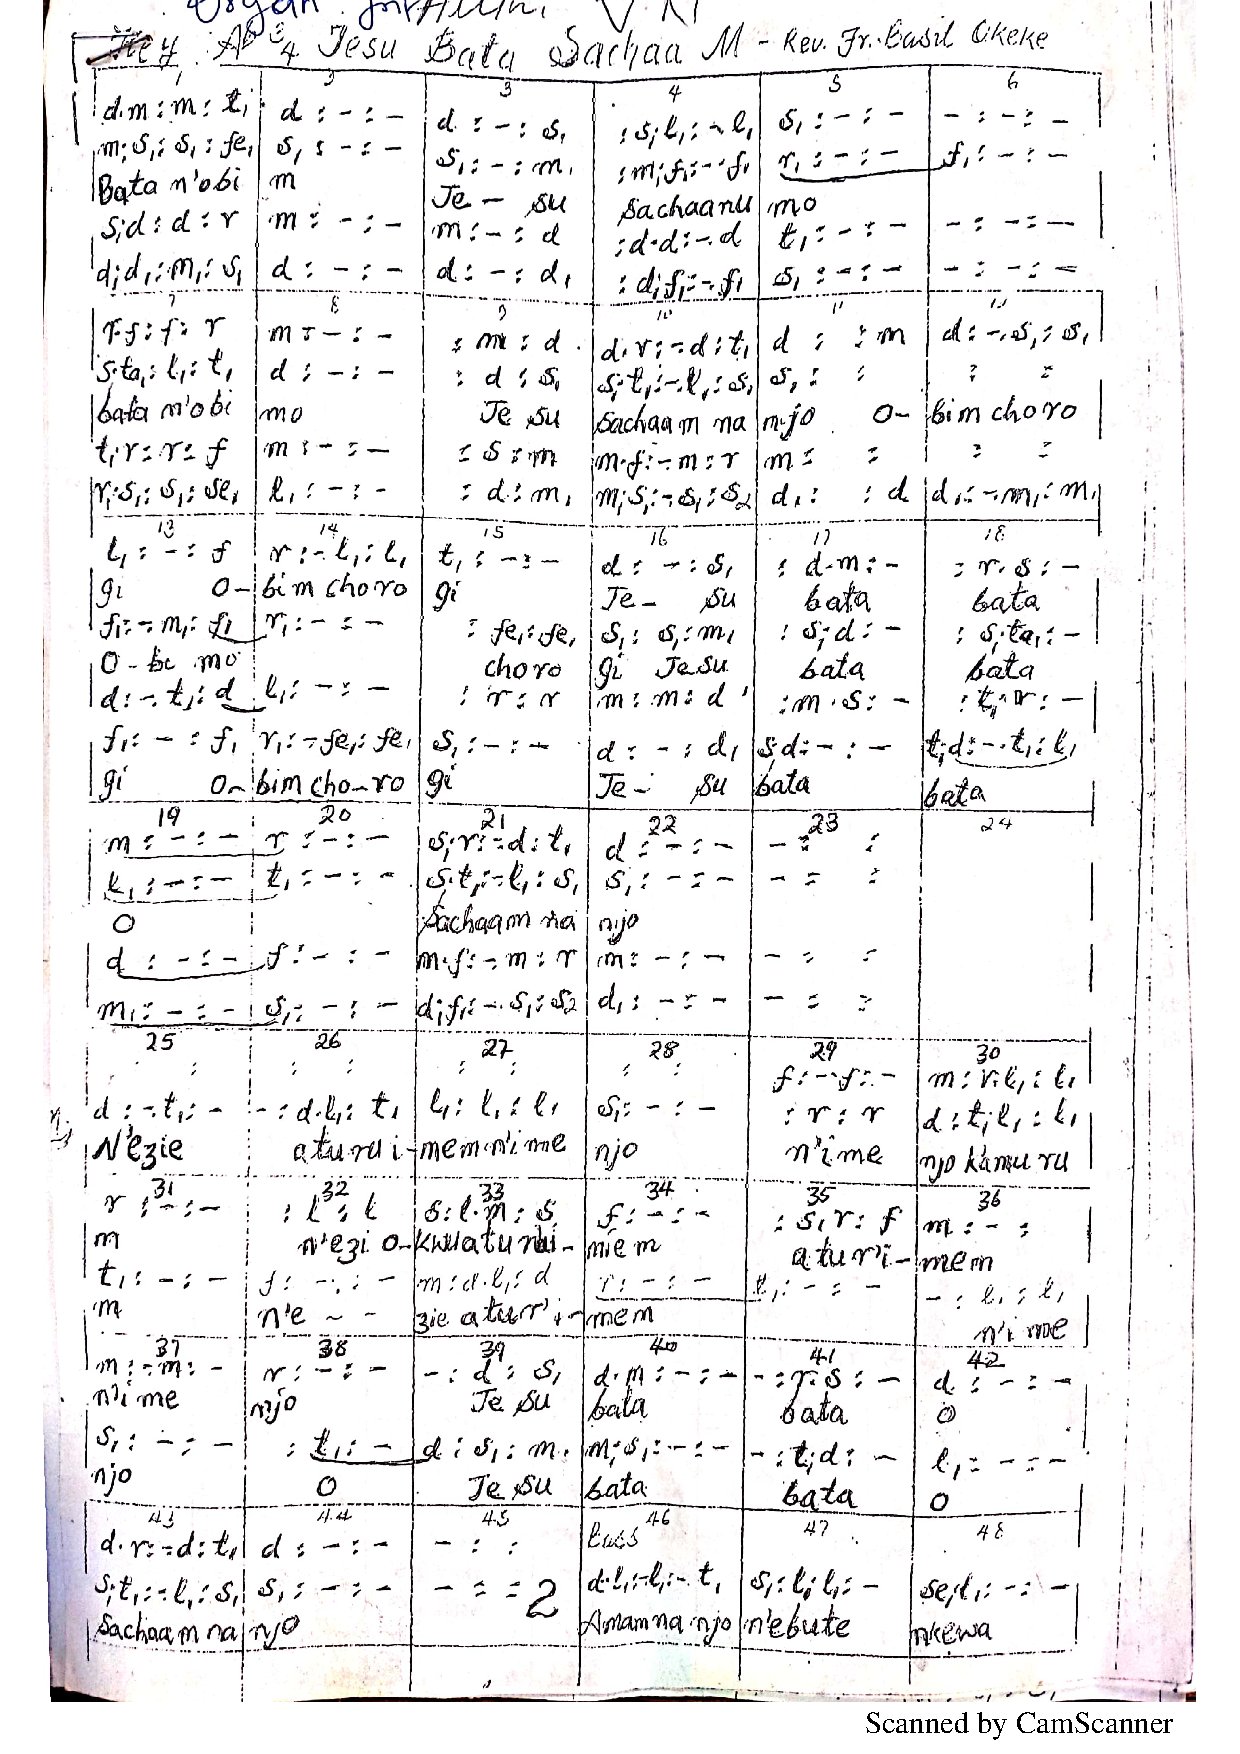 Organ Intr
Key Ab 3/4 Jesu Bata Sachaa M - Rev. Fr. Basil Okeke
3 4 5 6
d.m : m : t₁ d : - : - d : - : s₁ : s₁l₁ : -.l₁ s₁ : - : - - : - : -
m₁s₁ : s₁ : fe₁ s₁ : - : - s₁ : - : m₁ : m₁f₁ : -.f₁ r₁ : - : - f₁ : - : -
Bata n'obi m Je - su sachaanu mo
s₁d : d : r m : - : - m : - : d : d.d : -.d t₁ : - : - - : - : -
d₁d₁ : m₁ : s₁ d : - : - d : - : d₁ : d₁f₁ : -.f₁ s₁ : - : - - : - : -
7 8 9 10 11 12
r.f : f : r m : - : - : m : d d.r : -.d : t₁ d : : m d : -.s₁ : s₁
s₁ta₁ : l₁ : t₁ d : - : - : d : s₁ s₁t₁ : -.l₁ : s₁ s₁ : : : :
bata n'obi mo Je su sachaam na njo O- bim choro
t₁r : r : f m : - : - : s : m m.f : -.m : r m : : : :
r₁s₁ : s₁ : se₁ l₁ : - : - : d : m₁ m₁s₁ : -.s₁ : s₂ d₁ : : d d₁ : -.m₁ : m₁
13 14 15 16 17 18
l₁ : - : f r : -.l₁ : l₁ t₁ : - : - d : - : s₁ : d.m : - : r.s : -
gi O- bim choro gi Je- su bata bata
f₁ : -.m₁ : f₁ r₁ : - : - : fe₁ : fe₁ s₁ : s₁ : m₁ : s₁d : - : s₁ta₁ : -
O - bi mo choro gi Jesu bata bata
d : -.t₁ : d l₁ : - : - : r : r m : m : d : m.s : - : t₁.r : -
f₁ : - : f₁ r₁ : -.fe₁ : fe₁ s₁ : - : - d : - : d₁ s₁d : - : - t₁d : -.t₁ : l₁
gi O- bim cho-ro gi Je- su bata bata
19 20 21 22 23 24
m : - : - r : - : - s₁r : -.d : t₁ d : - : - - : :
l₁ : - : - t₁ : - : - s₁t₁ : -.l₁ : s₁ s₁ : - : - - : :
O sachaam na njo
d : - : - f : - : - m.f : -.m : r m : - : - - : :
m₁ : - : - s₁ : - : - d₁f₁ : -.s₁ : s₂ d₁ : - : - - : :
25 26 27 28 29 30
: : : : : : : : f : -.f : - m : r.l₁ : l₁
d : -.t₁ : - - : d.l₁ : t₁ l₁ : l₁ : l₁ s₁ : - : - : r : r d : t₁l₁ : l₁
N'ezie aturu i-mem n'ime njo n'ime njo kamuru
31 32 33 34 35 36
r : - : - : l : l s : l.m : s f : - : - : s₁r : f m : - :
m n'ezi o-kwuaturui-miem aturi'i-mem
t₁ : - : - f : - : - m : d.l₁ : d r : - : - l₁ : - : - - : l₁ : l₁
m n'e - - zie aturr'i-mem n'ime
37 38 39 40 41 42
m : -.m : - r : - : - - : d : s₁ d.m : - : - - : r.s : - d : - : -
n'ime njo Je su bata bata O
s₁ : - : - : t₁ : - d : s₁ : m₁ m₁s₁ : - : - - : t₁d : - l₁ : - : -
njo O Je su bata bata O
43 44 45 46 47 48
d.r : -.d : t₁ d : - : - - : : Bass
s₁t₁ : -.l₁ : s₁ s₁ : - : - - : : 2 d.l₁ : -.l₁ : -.t₁ s₁ : l₁l₁ : - se₁l₁ : - : -
sachaam na njo Amamna njo n'ebute nkewa
Scanned by CamScanner